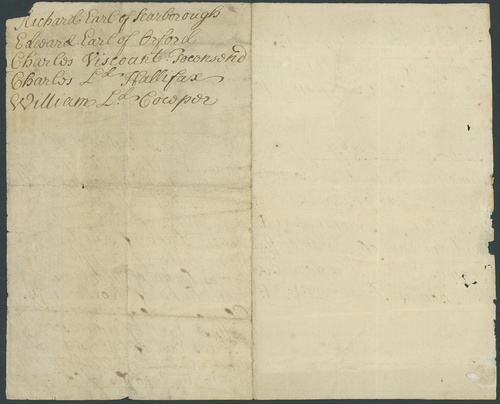 Richard Earl of Scarborough
Edward Earl of Orford
Charles Viscount Townsend
Charles Ld Hallifax
William Ld Cowper